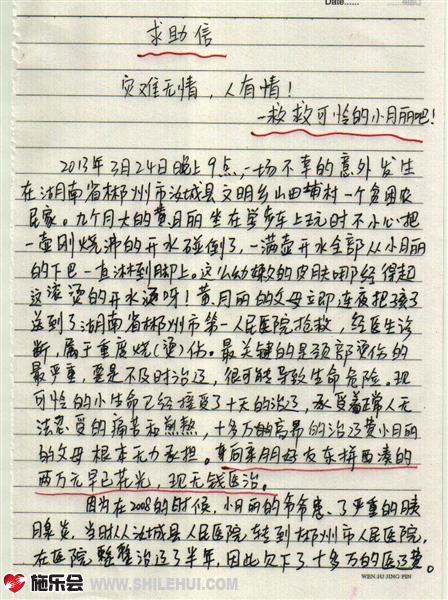 Date......
求助信
灾难无情，人有情！
—救救可怜的小月丽吧！
2013年3月24日晚上9点，一场不幸的意外发生
在湖南省郴州市汝城县文明乡山田埔村一个贫困农
民家。九个月大的黄月丽坐在学步车上玩时不小心把
一壶刚烧沸的开水碰倒了，一满壶开水全部从小月丽
的下巴一直淋到脚上。这么幼嫩的皮肤哪经得起
这滚烫的开水烫呀！黄月丽的父母立即连夜把孩子
送到了湖南省郴州市第一人民医院抢救，经医生诊
断，属于重度烧(烫)伤。最关键的是颈部烫伤的
最严重，要是不及时治疗，很可能导致生命危险。现
可怜的小生命已经接受了十天的治疗，承受着正常人无
法忍受的痛苦和煎熬，十多万的高昂的治疗费小月丽
的父母根本无力承担。向亲朋好友东拼西凑的
两万元早已花光，现无钱医治。
因为在2008的时候，小月丽的爷爷患了严重的胰
腺炎，当时从汝城县人民医院转到郴州市人民医院，
在医院整整治疗了半年，因此欠下了十多万的医疗费。
施乐会 WWW.SHILEHUI.COM
WEN JU JING PIN